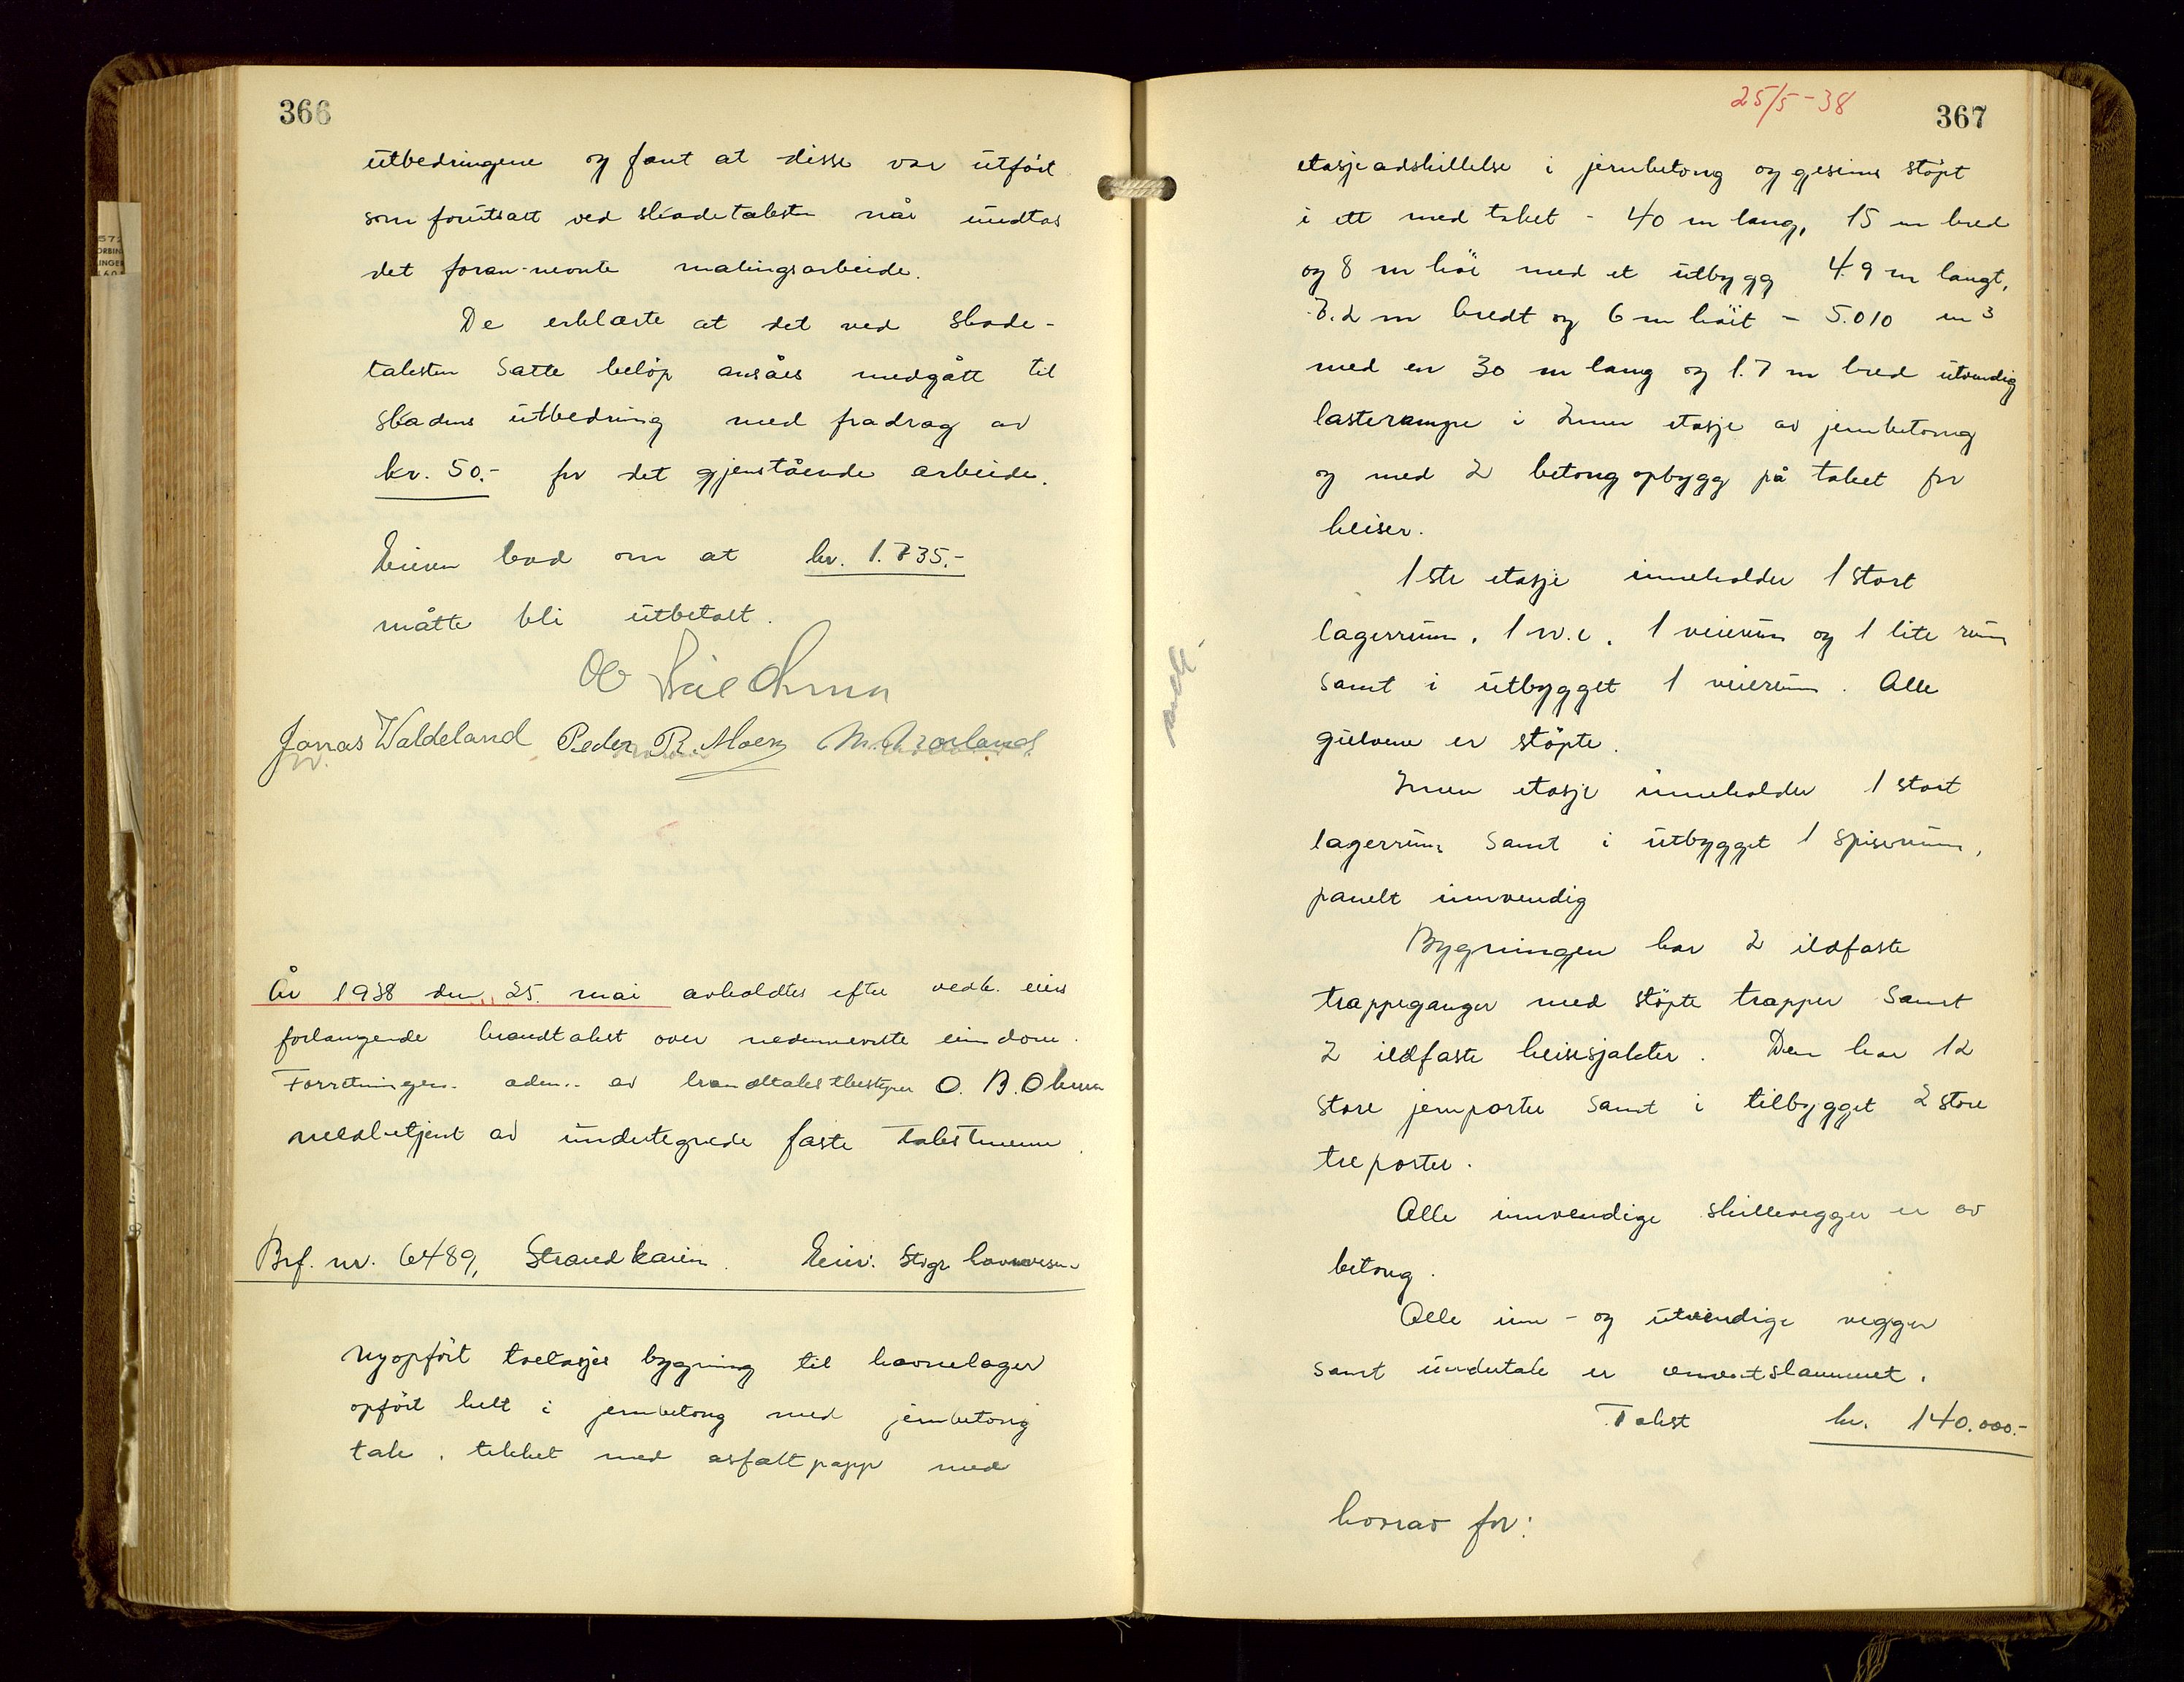 366
utbedringene og fant at disse var utført
som forutsatt ved skadetaksten når undtas
det foran-nevnte malingsarbeide.
De erklærte at det ved skade-
taksten satte beløp ansåes medgått til
skadens utbedring med fradrag av
kr. 50.- for det gjenstående arbeide.
Eieren bad om at kr. 1.735.-
måtte bli utbetalt.
Jonas Waldeland Peder R. Moen
År 1938 den 25. mai avholdtes efter vedk. eiers
forlangende brandtakst over nedennevnte eiendom.
Forretningen adm. av branntakstbestyrer O. B. Ohma
medbetjent av undertegnede faste takstmenn.
Brf. nr. 6489, Strandkaien. Eier: Stvgr havnevesen
Nyopført toetasjes bygning til havnelager
opført helt i jernbetong med jernbetong
tak, tekket med asfaltpapp med
25/5-38
367
etasjeadskillelse i jernbetong og gesims støpt
i ett med taket - 40 m lang, 15 m bred
og 8 m høi med et utbygg 4.9 m langt,
3.2 m bredt og 6 m høit - 5.010 m³
med en 30 m lang og 1.7 m bred utvendig
lasterampe i 2nen etasje av jernbetong
og med 2 betongopbygg på taket for
heiser.
1ste etasje inneholder 1 stort
lagerrum, 1 w.c, 1 veierum og 1 lite rum
samt i utbygget 1 veierum. Alle
gulvene er støpte.
2nen etasje inneholder 1 stort
lagerrum samt i utbygget 1 spiserum,
panelt innvendig
Bygningen har 2 ildfaste
trappeganger med støpte trapper samt
2 ildfaste heisesjakter. Den har 12
store jernporter samt i tilbygget 2 store
treporter.
Alle innvendige skillevegger er av
betong.
Alle inn- og utvendige vegger
samt undertak er cementslammet.
Takst kr. 140.000.-
hvorav for: